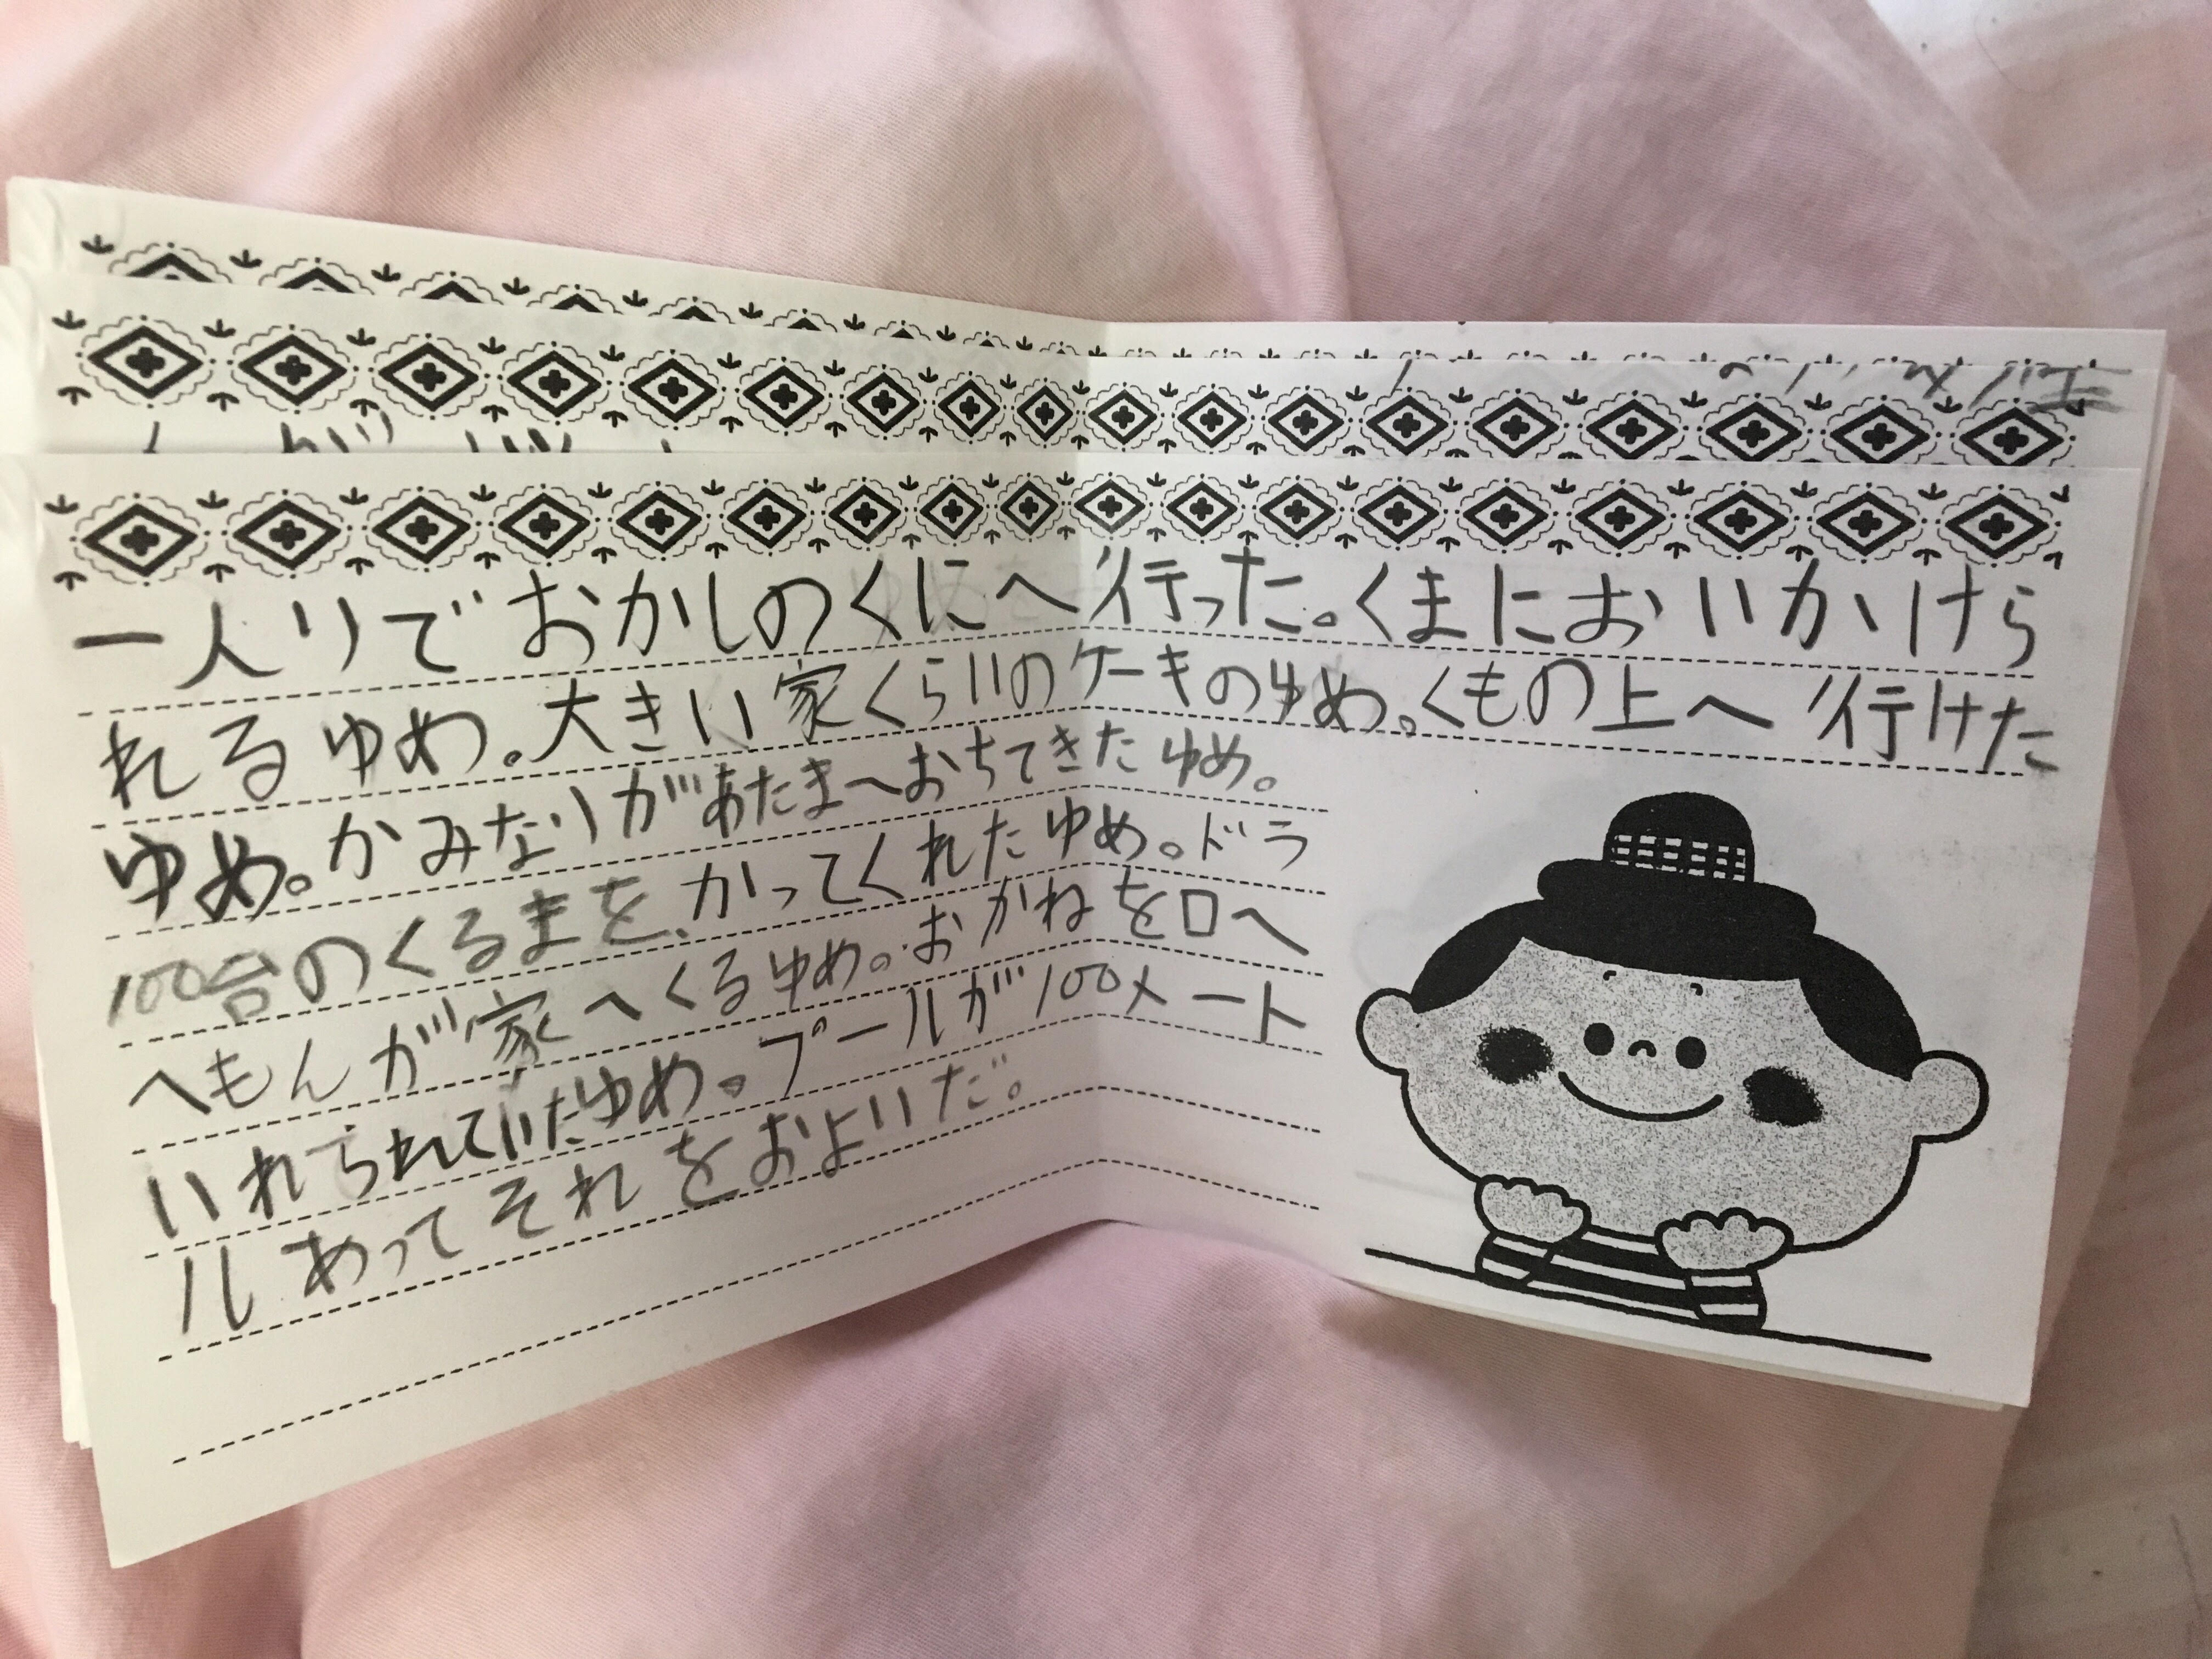 一人りでおかしのくにへ行った。くまにおいかけら
れるゆめ。大きい家くらいのケーキのゆめ。くもの上へ行けた
ゆめ。かみなりがあたまへおちてきたゆめ。
100台のくるまを、かってくれたゆめ。ドラ
へもんが家へくるゆめ。おかねを口へ
いれられていたゆめ。プールが100メート
ルあってそれをおよいだ。